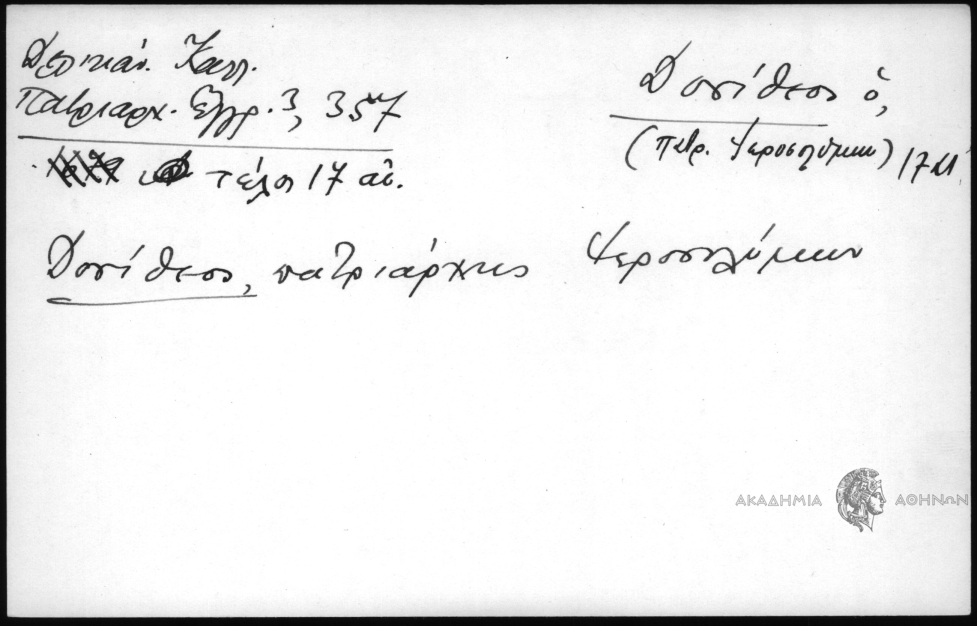 Δελικάν. Καλλ.
Πατριαρχ. Έγγρ. 3, 357
τέλος 17 αἰ.
Δοσίθεος ὁ,
(πατρ. Ἱεροσολύμων) 17 αἰ.
Δοσίθεος, πατριάρχης Ἱεροσολύμων
ΑΚΑΔΗΜΙΑ ΑΘΗΝΩΝ